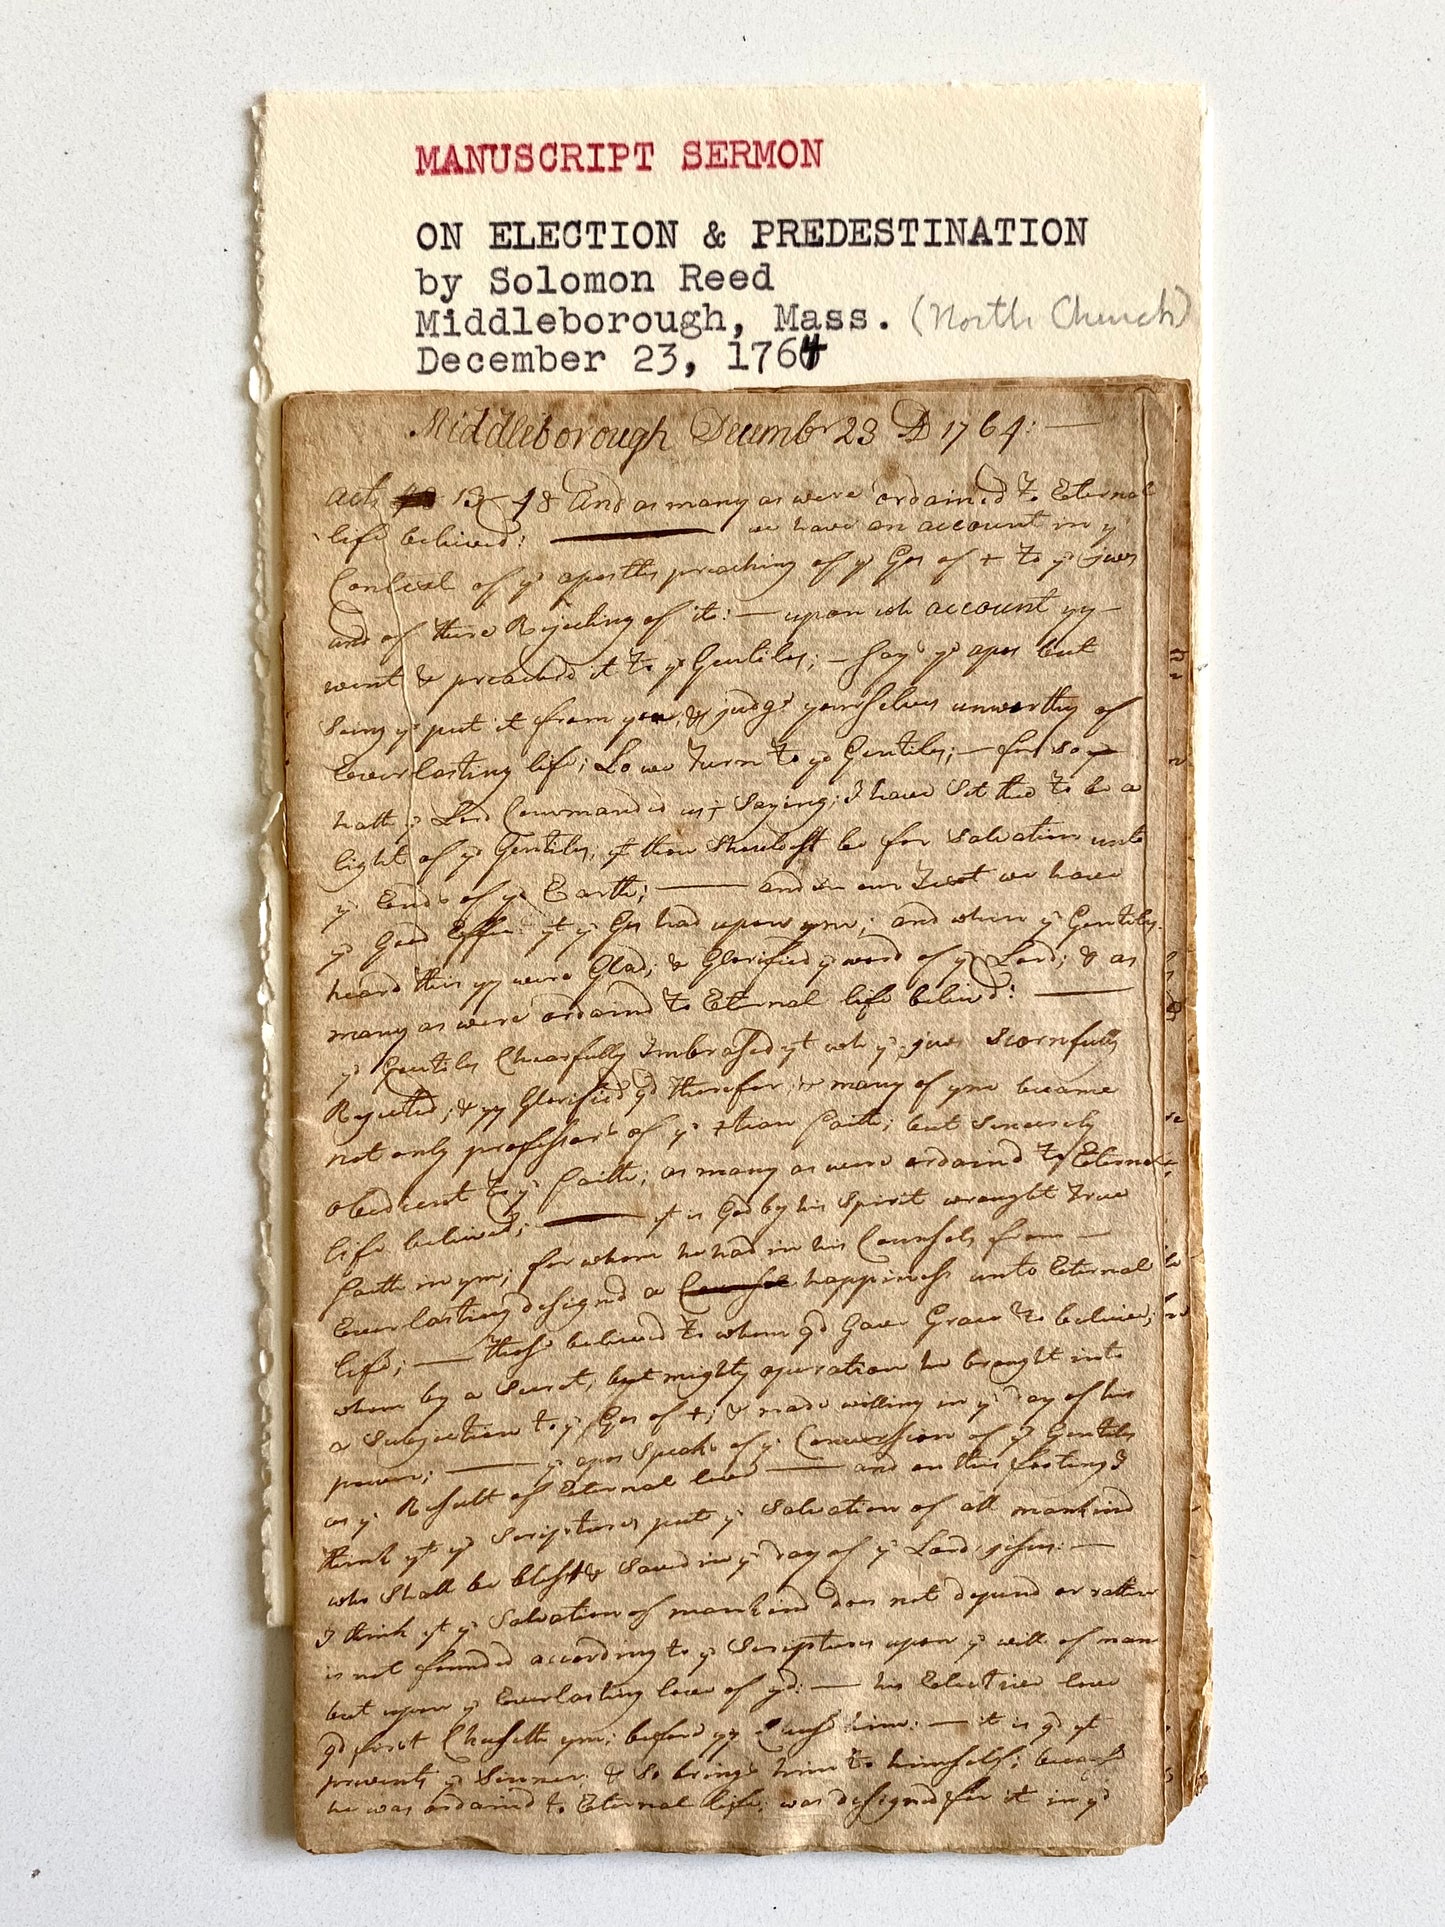 MANUSCRIPT SERMON
ON ELECTION & PREDESTINATION
by Solomon Reed
Middleborough, Mass. (North Church)
December 23, 1764
Middleborough Decembr 23 AD 1764:
Acts 13 48 And as many as were ordained to Eternal
life believed: we have an account in ye
Context of ye apostles preaching of ye Gos of + to ye jews
and of there Rejecting of it: — upon wh account yy —
went & preached it to ye Gentiles; — say ye apos but
ye put it from you, & judge yourselves unworthy of
Everlasting life; Lo we Turn to ye Gentiles; — for so
hath ye Lord Commanded us, Saying; I have Set thee to be a
light of ye Gentiles, yt thou Shouldst be for Salvation unto
ye Ends of ye Earth; — and in our Text we have
ye Good Effect yt ye Gos had upon ym; and when ye Gentiles
heard this yy were Glad; & Glorified ye word of ye Lord; & as
many as were ordaind to Eternal life believd: —
ye Gentiles Chearfully Imbrased yt wh ye jews Scornfully
Rejected; & yy Glorified gd therefor; & many of ym became
not only professors of ye +tian faith; but Sincerely
obedient to ye faith; as many as were ordaind to Eternal
life believed; — yt is God by his Spirit wrought True
faith in ym; for whom he had in his Counsels from —
Everlasting designd a happiness unto Eternal
life; — those believed to whom gd Gave Grace to believe;
whom by a Secret, but mighty operation he brought into
a Subjection to ye Gos of +; & made willing in ye day of his
power; — ye apos Speaks of ye Conversion of ye Gentiles
as ye Result of Eternal love — and on this footing I
think yt ye Scriptures put ye Salvation of all mankind
who Shall be blest & Saved in ye day of ye Lord jesus: —
I think yt ye Salvation of mankind does not depend or rather
is not founded according to ye Scriptures upon ye will of man
but upon ye Everlasting love of gd: — his Elective love
gd first Chuseth ym; before yy Chuse him: — it is gd yt
prevents ye Sinner & So brings him to himself; because
he was ordaind to Eternal life; was designed for it in ye